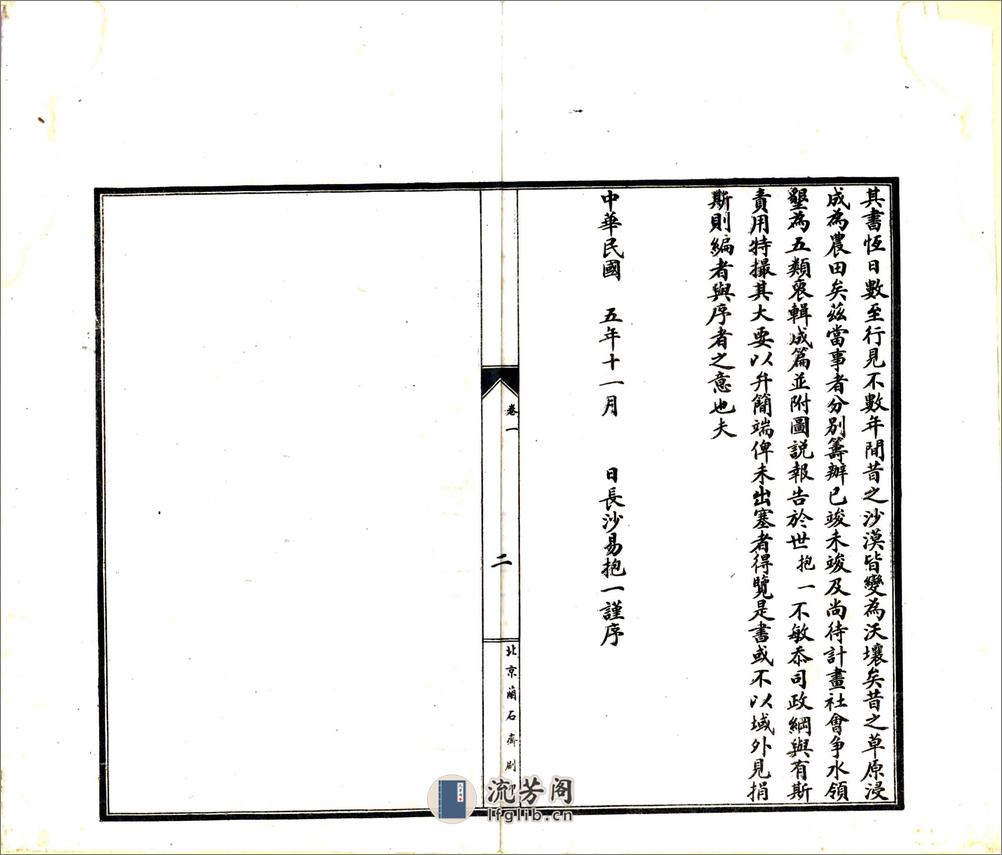 其書恆日數至行見不數年間昔之沙漠皆變為沃壤矣昔之草原浸
成為農田矣茲當事者分別籌辦已竣未竣及尚待計畫社會爭水領
墾為五類裒輯成篇並附圖説報告於世抱一不敏忝司政綱與有斯
責用特撮其大要以弁簡端俾未出塞者得覽是書或不以域外見捐
斯則編者與序者之意也夫
中華民國　五年十一月　　日長沙易抱一謹序
卷一
二
北京蘭石齋刷
流芳阁
lfglib.cn